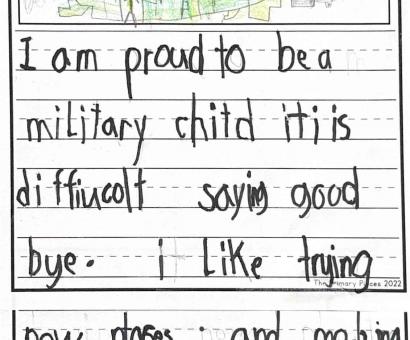 I am proud to be a
military child iti is
diffiucolt saying good
bye. i like trying
The Primary Pieces 2022
now places and making